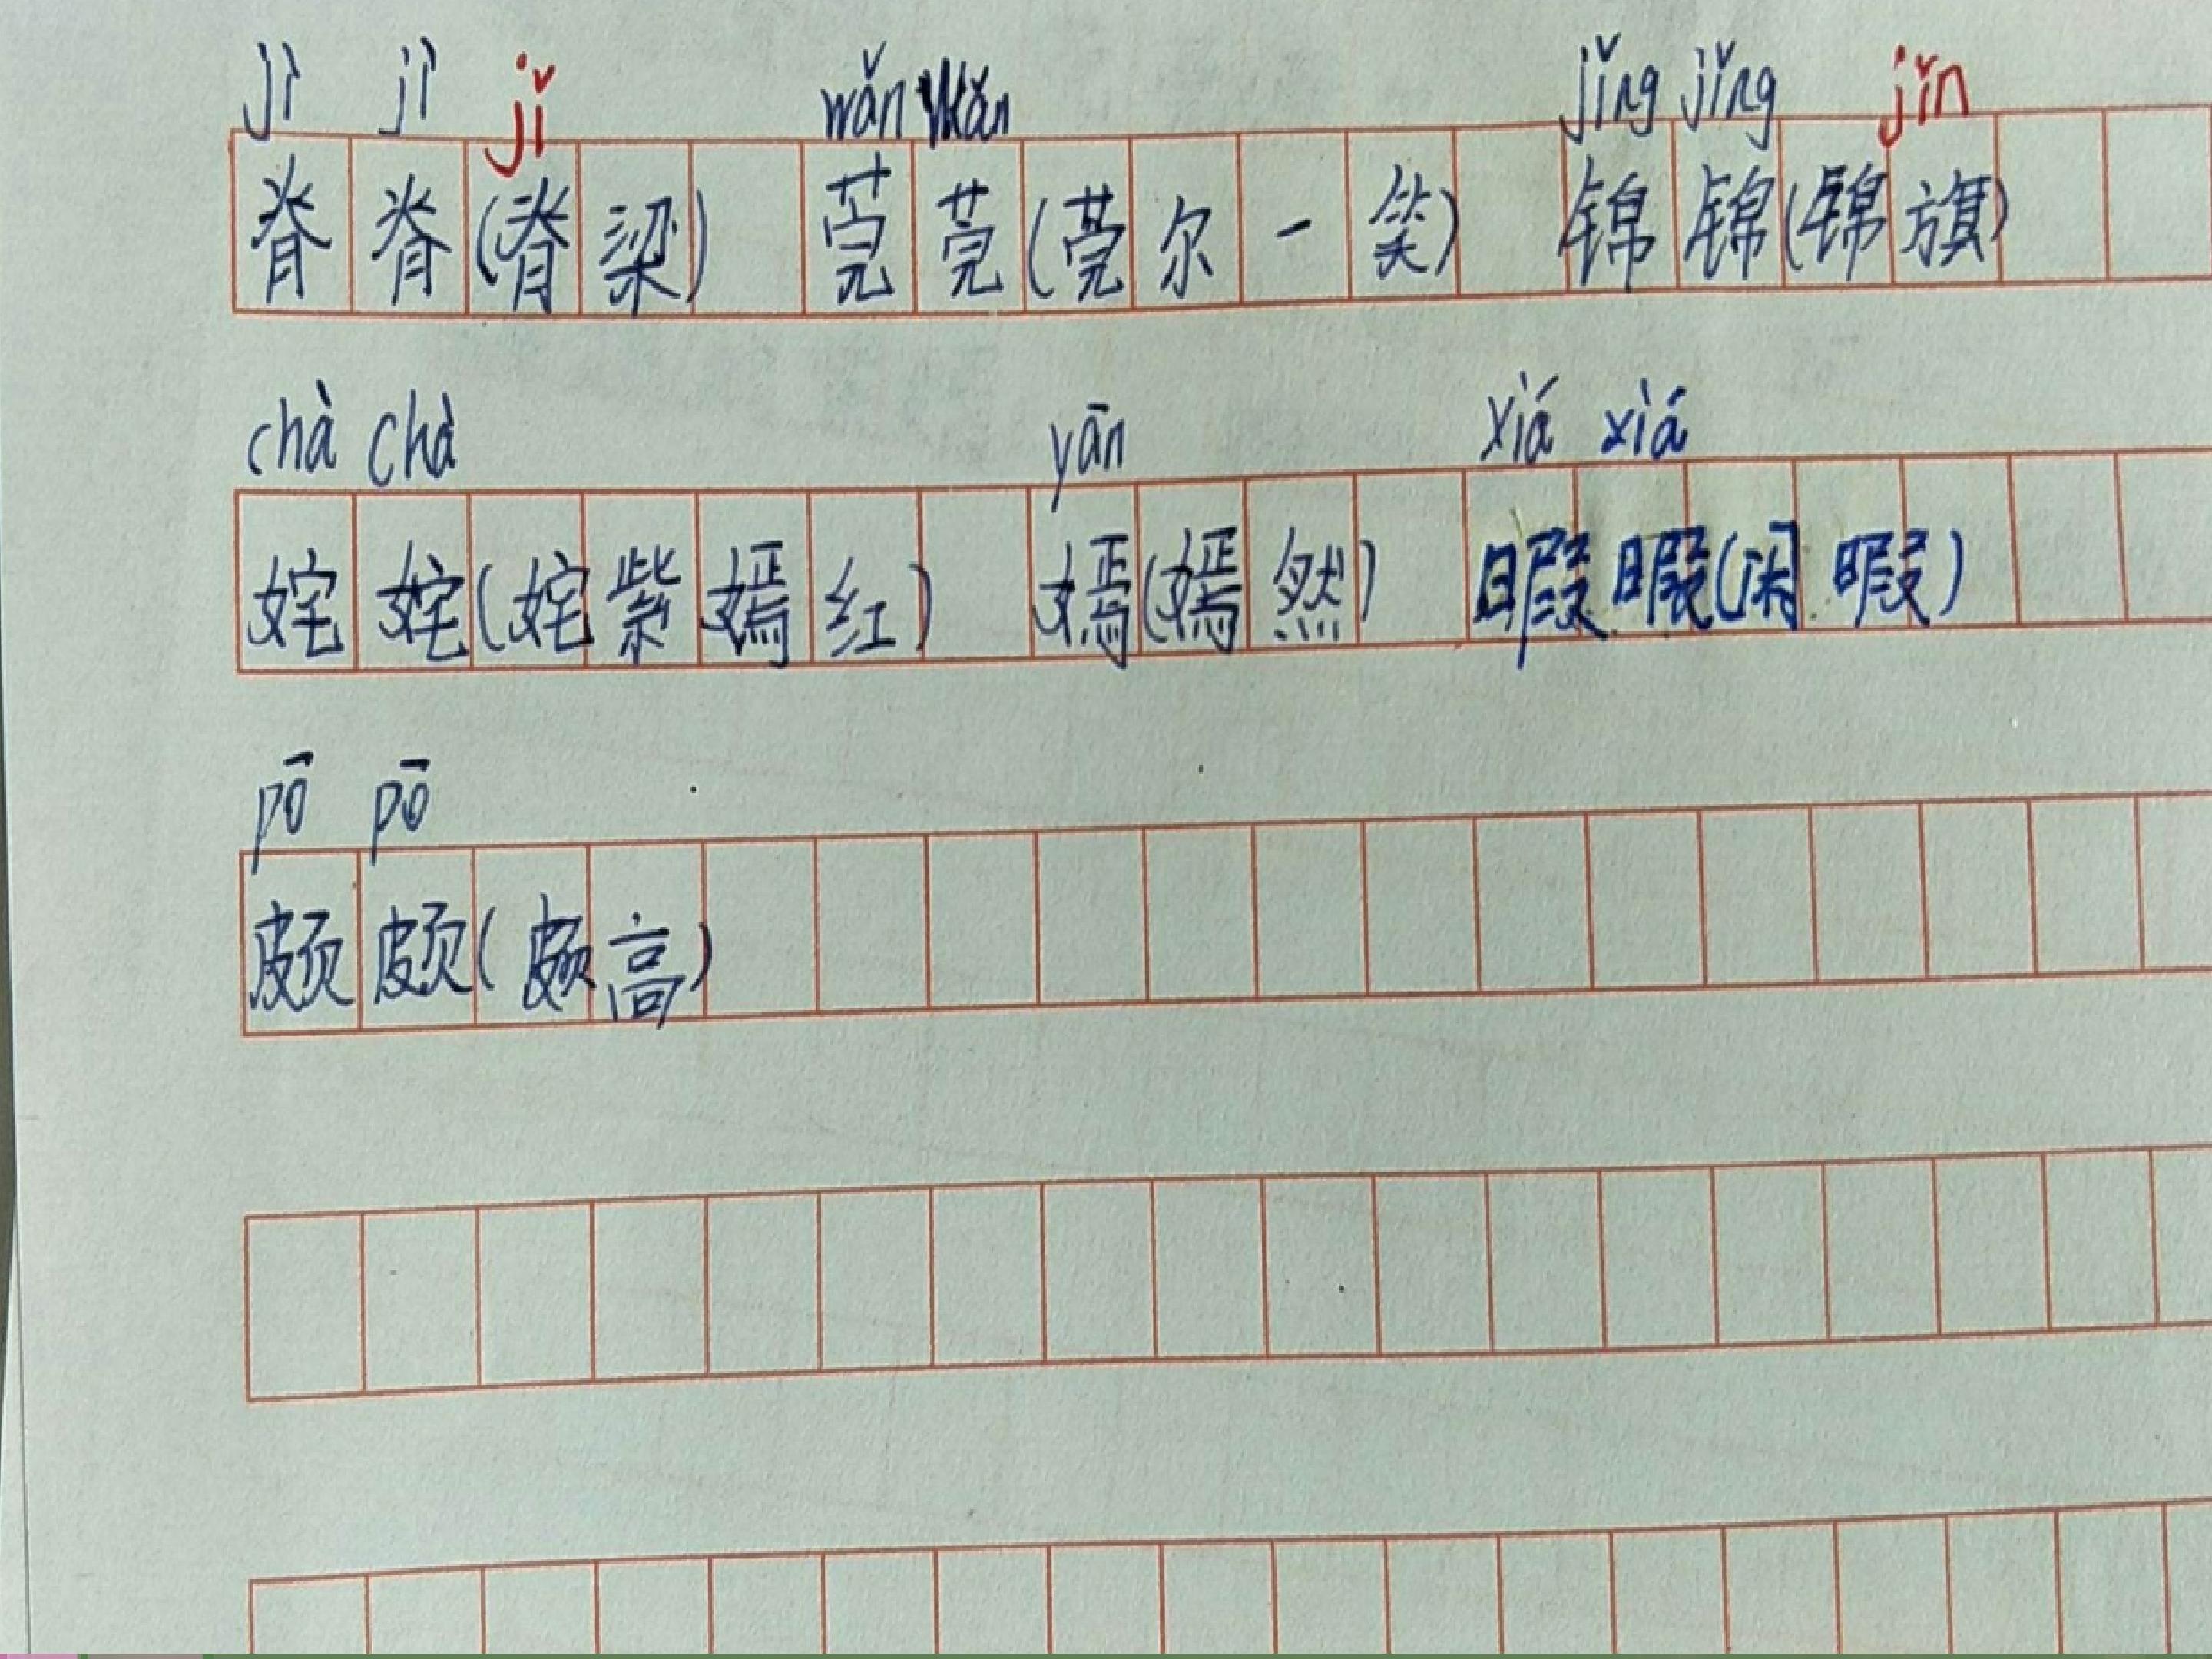 jì jì jǐ wǎn wǎn jǐng jǐng jǐn
脊脊(脊梁) 莞莞(莞尔一笑) 锦锦(锦旗)
chà chà yān xiá xiá
姹姹(姹紫嫣红) 嫣(嫣然) 暇暇(闲暇)
pō pō
颇颇(颇高)